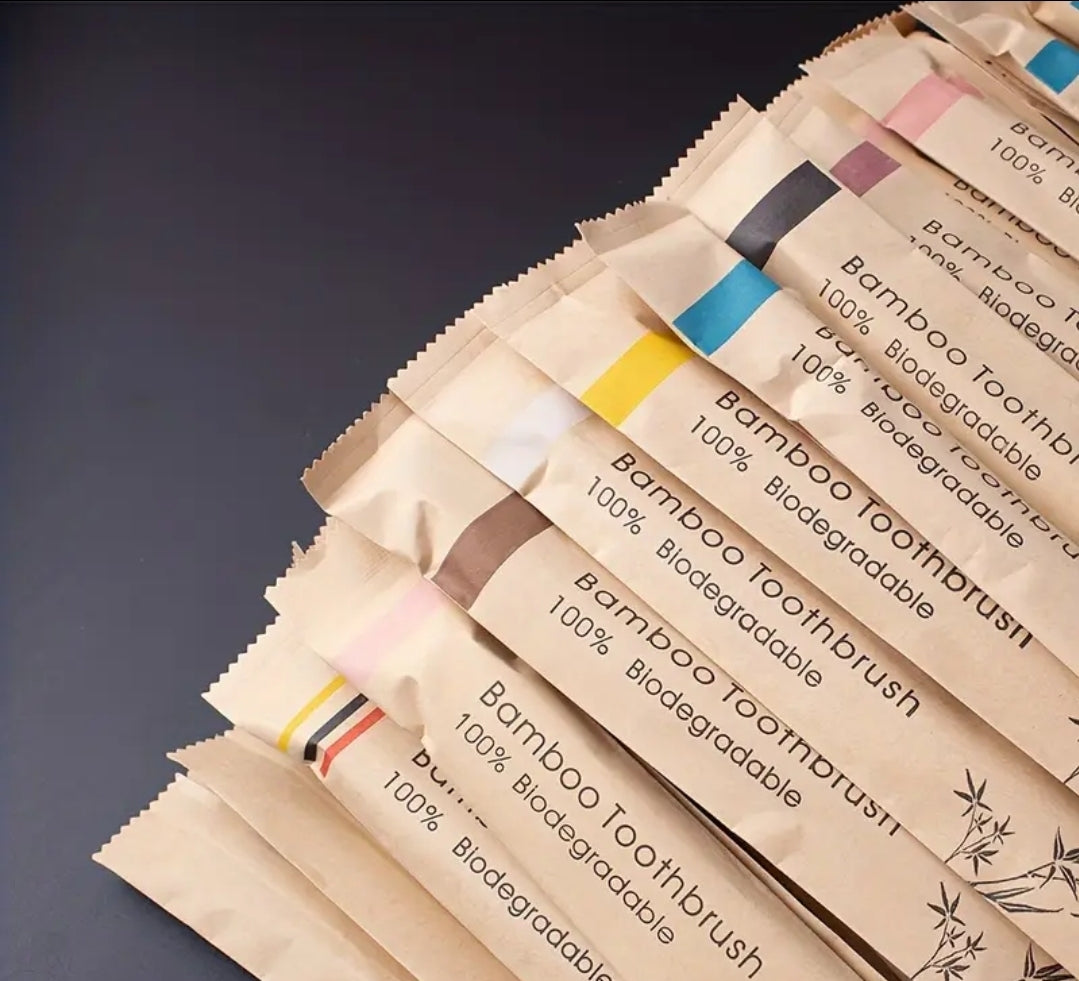 Bam
100% Bi
Bamboo
Bamboo T
100% Biodegrada
Bamboo Toothb
100% Biodegradable
Bamboo Toothbru
100% Biodegradable
Bamboo Toothbrush
100% Biodegradable
Bamboo Toothbrush
100% Biodegradable
Bamboo Toothbrush
100% Biodegradable
Bamboo Toothbrush
100% Biodegradable
100% Biodegradable